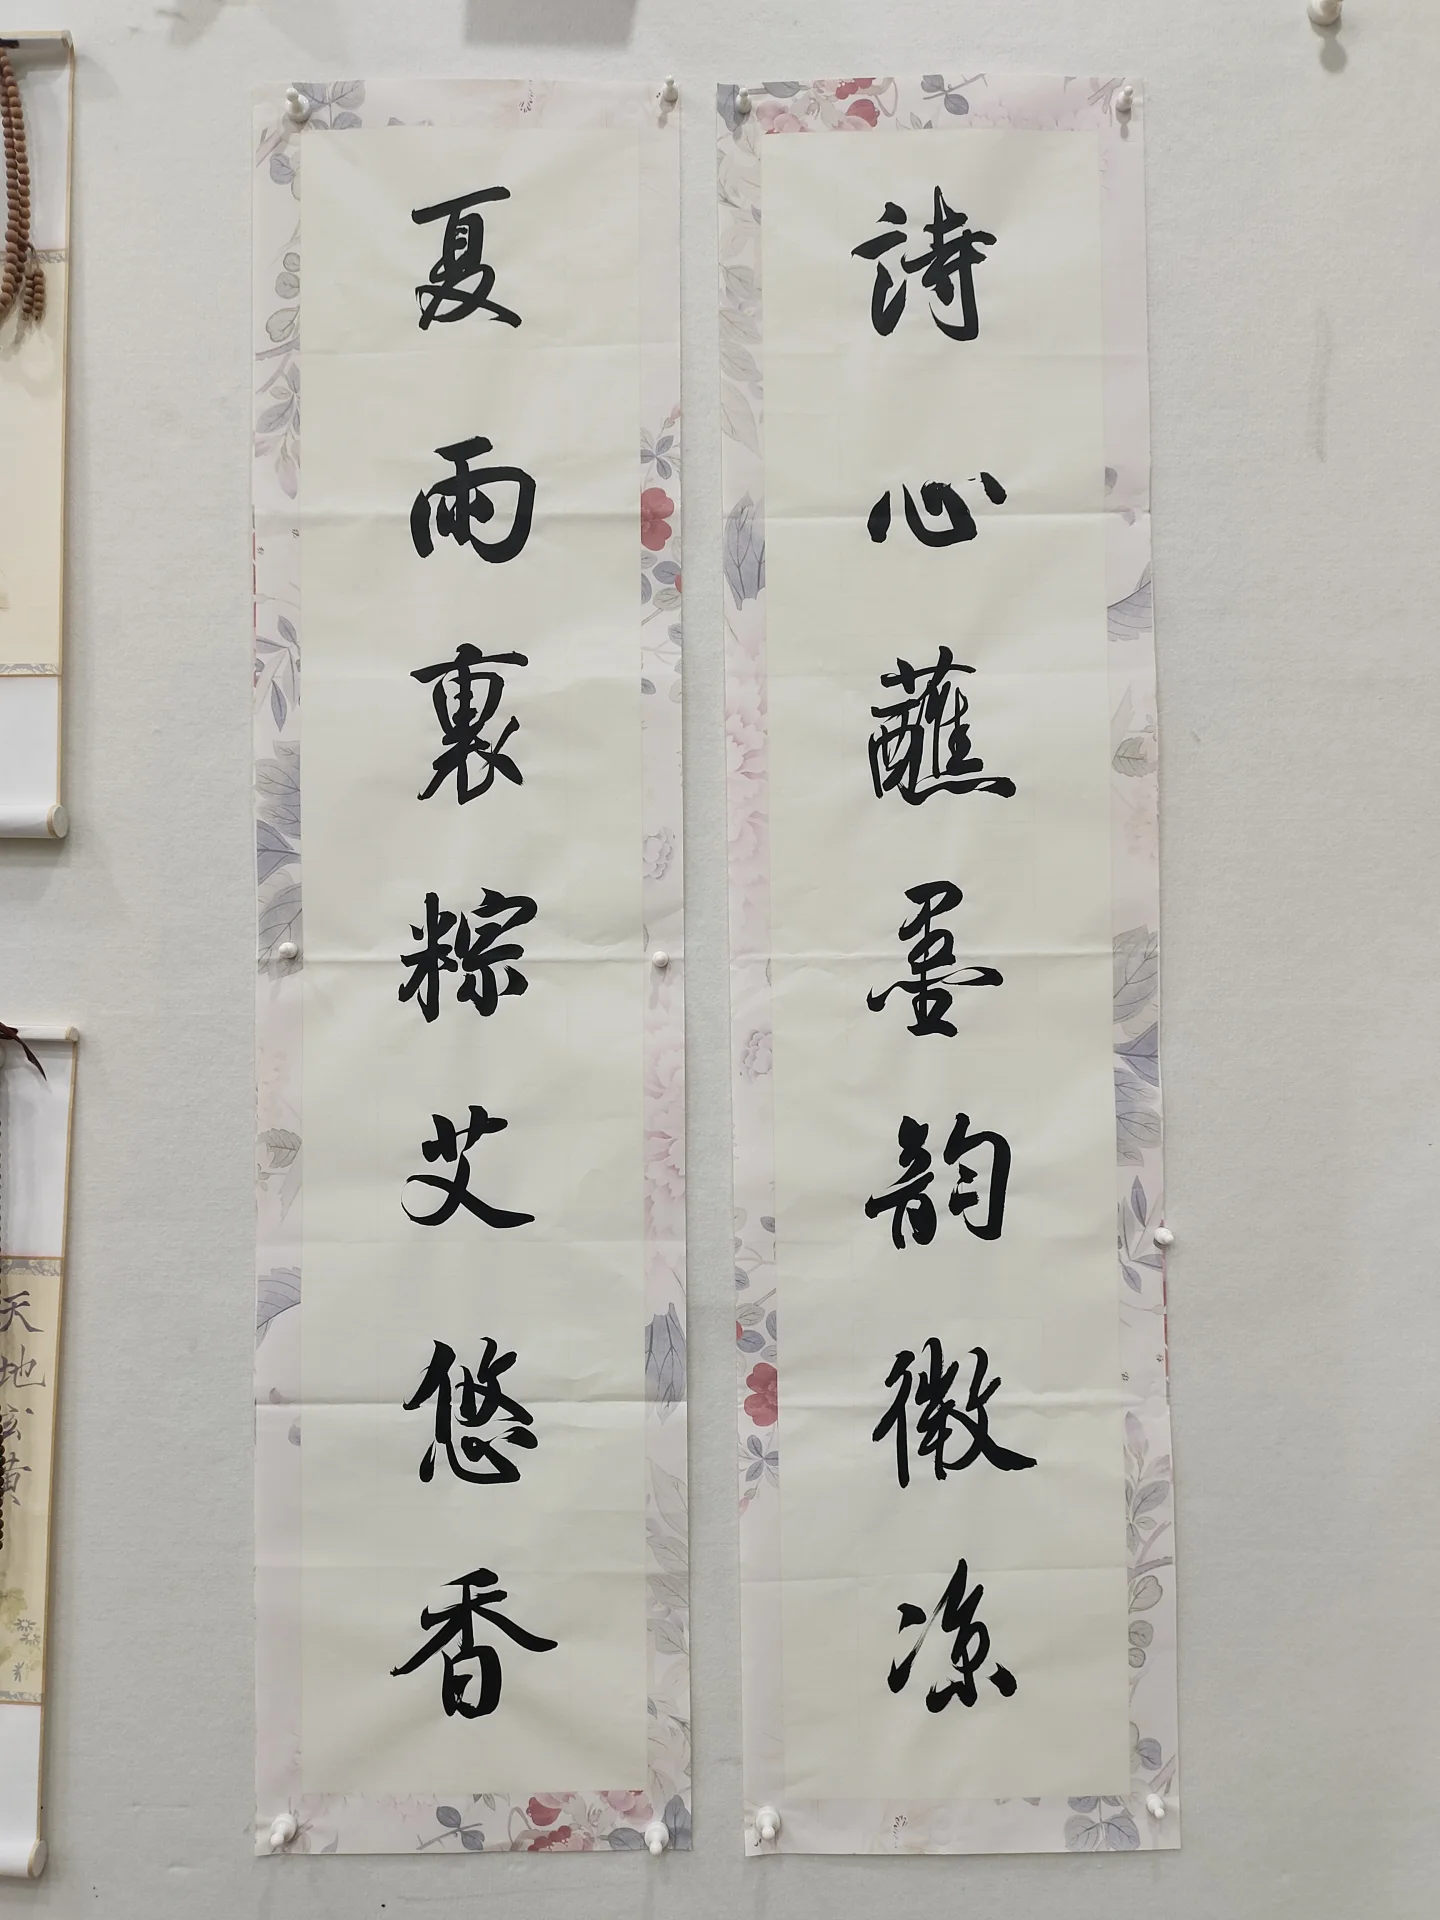 詩心蘸墨韵微凉
夏雨裹粽艾悠香
天地玄黄